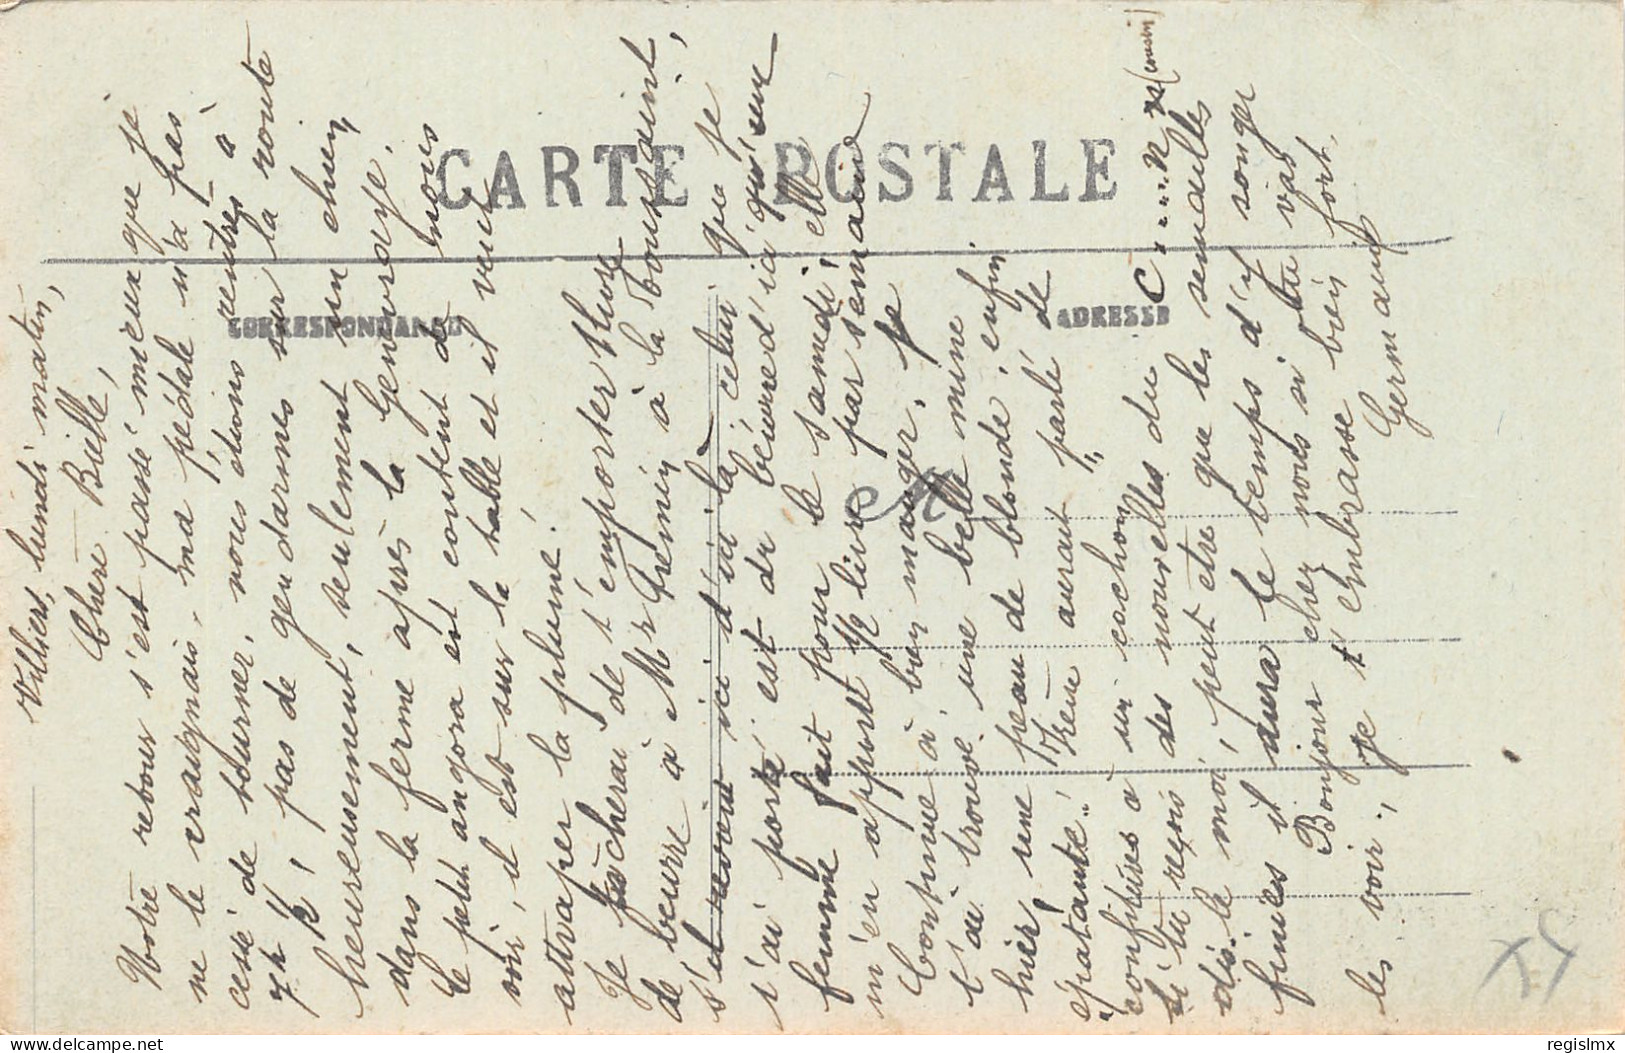 CARTE POSTALE
CORRESPONDANCE
ADRESSE
Villiers, lundi matin,
Chère Bielle,
Notre retour s'est passé mieux que je
ne le craignais, ma pédale n'a pas
cessé de tourner, nous étions rentrés à
7h ½, pas de gendarmes sur la route
heureusement, seulement un chien
dans la ferme après la Genevraye.
Le petit angora est content de nous
voir, il est sur la table et il veut
attraper la plume!
Je tâcherai de t'emporter 1 livre
de beurre à Mr Frémin à la Toussaint,
s'il revoit ici d'ici là celui que je
t'ai porté est du beurre d'ici qu'une
femme fait pour le samedi, elle
m'en apporte ½ livre par semaine
Continue à bien manger, je
t'ai trouvé une belle mine
hier, une peau de blonde, enfin
épatante! Irène aurait parlé de
"confitures à un cochon"
Si tu reçois des nouvelles du C....n (cousin)
dis-le moi, peut être que les semailles
finies il aura le temps d'y songer
Bonjour chez nous si tu vas
les voir, je t'embrasse bien fort.
Germaine
regislmx
delcampe.net